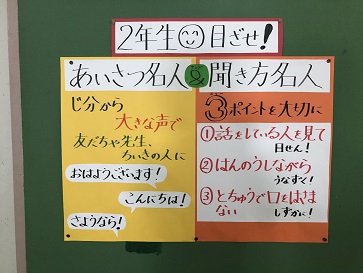 2年生 目ざせ!
あいさつ名人&聞き方名人
じ分から
大きな声で
友だちや先生、
ちいきの人に
おはようございます!
こんにちは!
さようなら!
3ポイントを大切に
①話をしている人を見て
目せん!
②はんのうしながら
うなずく!
③とちゅうで口をはさま
ない しずかに!